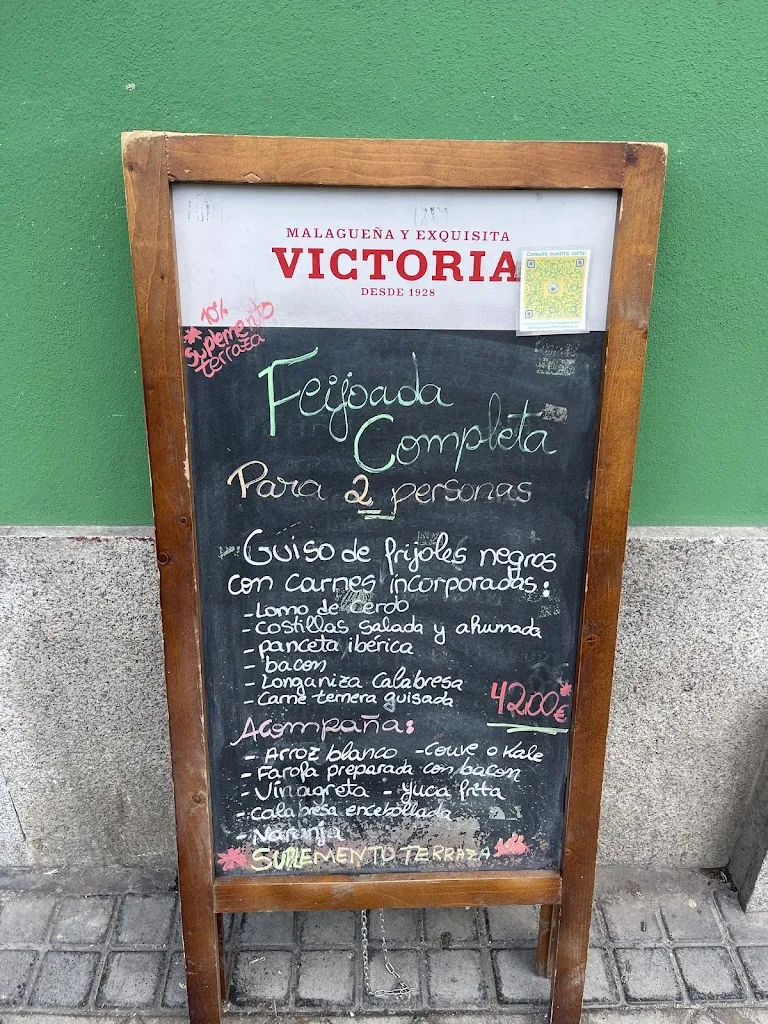 MALAGUEÑA Y EXQUISITA
VICTORIA
DESDE 1928
Consulta nuestra carta:
10%
* Suplemento
terraza
Feijoada
Completa
Para 2 personas
Guiso de frijoles negros
con carnes incorporadas:
- Lomo de cerdo
- Costillas salada y ahumada
- panceta ibérica
- bacon
- Longaniza Calabresa
- Carne ternera guisada
42,00€*
Acompaña:
- Arroz blanco - Couve o Kale
- Farofa preparada con bacon
- Vinagreta - yuca frita
- Calabresa encebollada
- Naranja
* SUPLEMENTO TERRAZA *